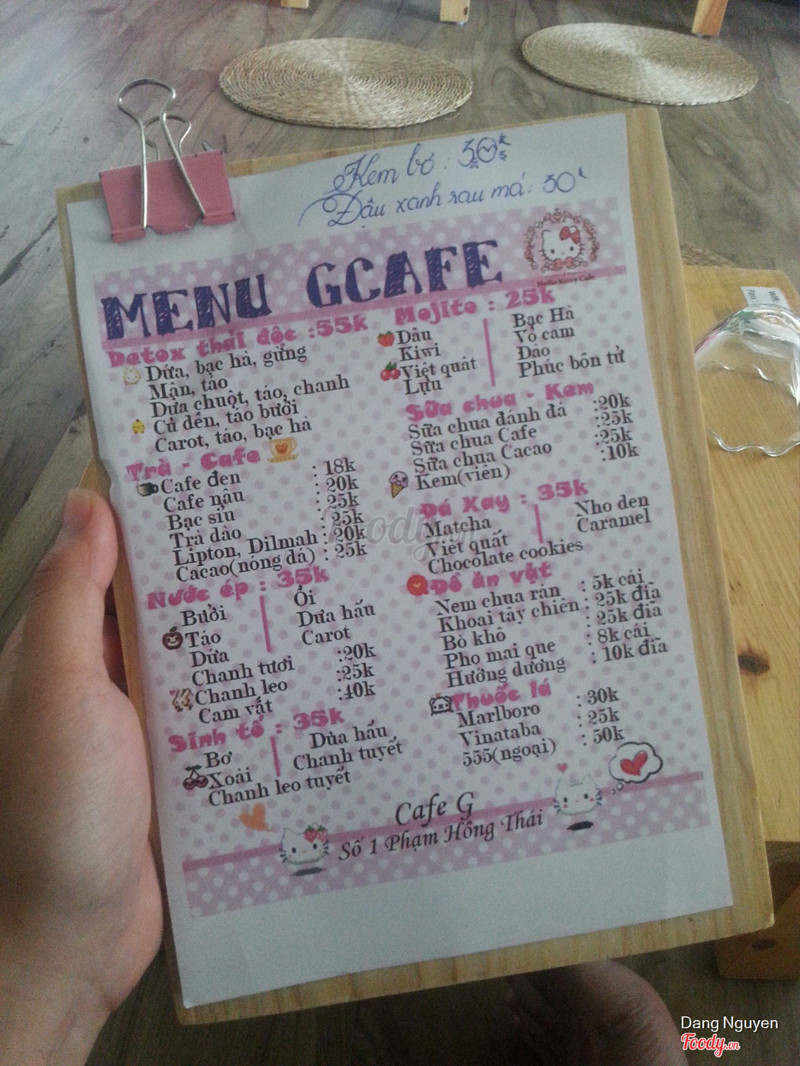 Kem bơ : 30k
Đậu xanh rau má: 30k
MENU GCAFE
Hello Kitty Cafe
Detox thải độc :55k
Dứa, bạc hà, gừng
Mận, táo
Dưa chuột, táo, chanh
Củ dền, táo bưởi
Carot, táo, bạc hà
Trà - Cafe
Cafe đen : 18k
Cafe nâu : 20k
Bạc sỉu : 25k
Trà đào : 25k
Lipton, Dilmah : 20k
Cacao(nóng đá) : 25k
Nước ép : 35k
Bưởi
Táo
Dứa
Ổi
Dưa hấu
Carot
Chanh tươi :20k
Chanh leo :25k
Cam vắt :40k
Sinh tố : 35k
Bơ
Xoài
Dừa hấu
Chanh tuyết
Chanh leo tuyết
Mojito : 25k
Dâu
Kiwi
Việt quât
Lựu
Bạc Hà
Vỏ cam
Đào
Phúc bồn tử
Sữa chua - Kem
Sữa chua đánh đá :20k
Sữa chua Cafe :25k
Sữa chua Cacao :25k
Kem(viên) :10k
Đá Xay : 35k
Matcha
Việt quất
Chocolate cookies
Nho đen
Caramel
Đồ ăn vặt
Nem chua rán : 5k cái
Khoai tây chiên : 25k đĩa
Bò khô : 25k đĩa
Pho mai que : 8k cái
Hướng dương : 10k đĩa
Thuốc lá
Marlboro : 30k
Vinataba : 25k
555(ngoại) : 50k
Cafe G
Số 1 Phạm Hồng Thái
Foody.vn
Dang Nguyen
Foody.vn